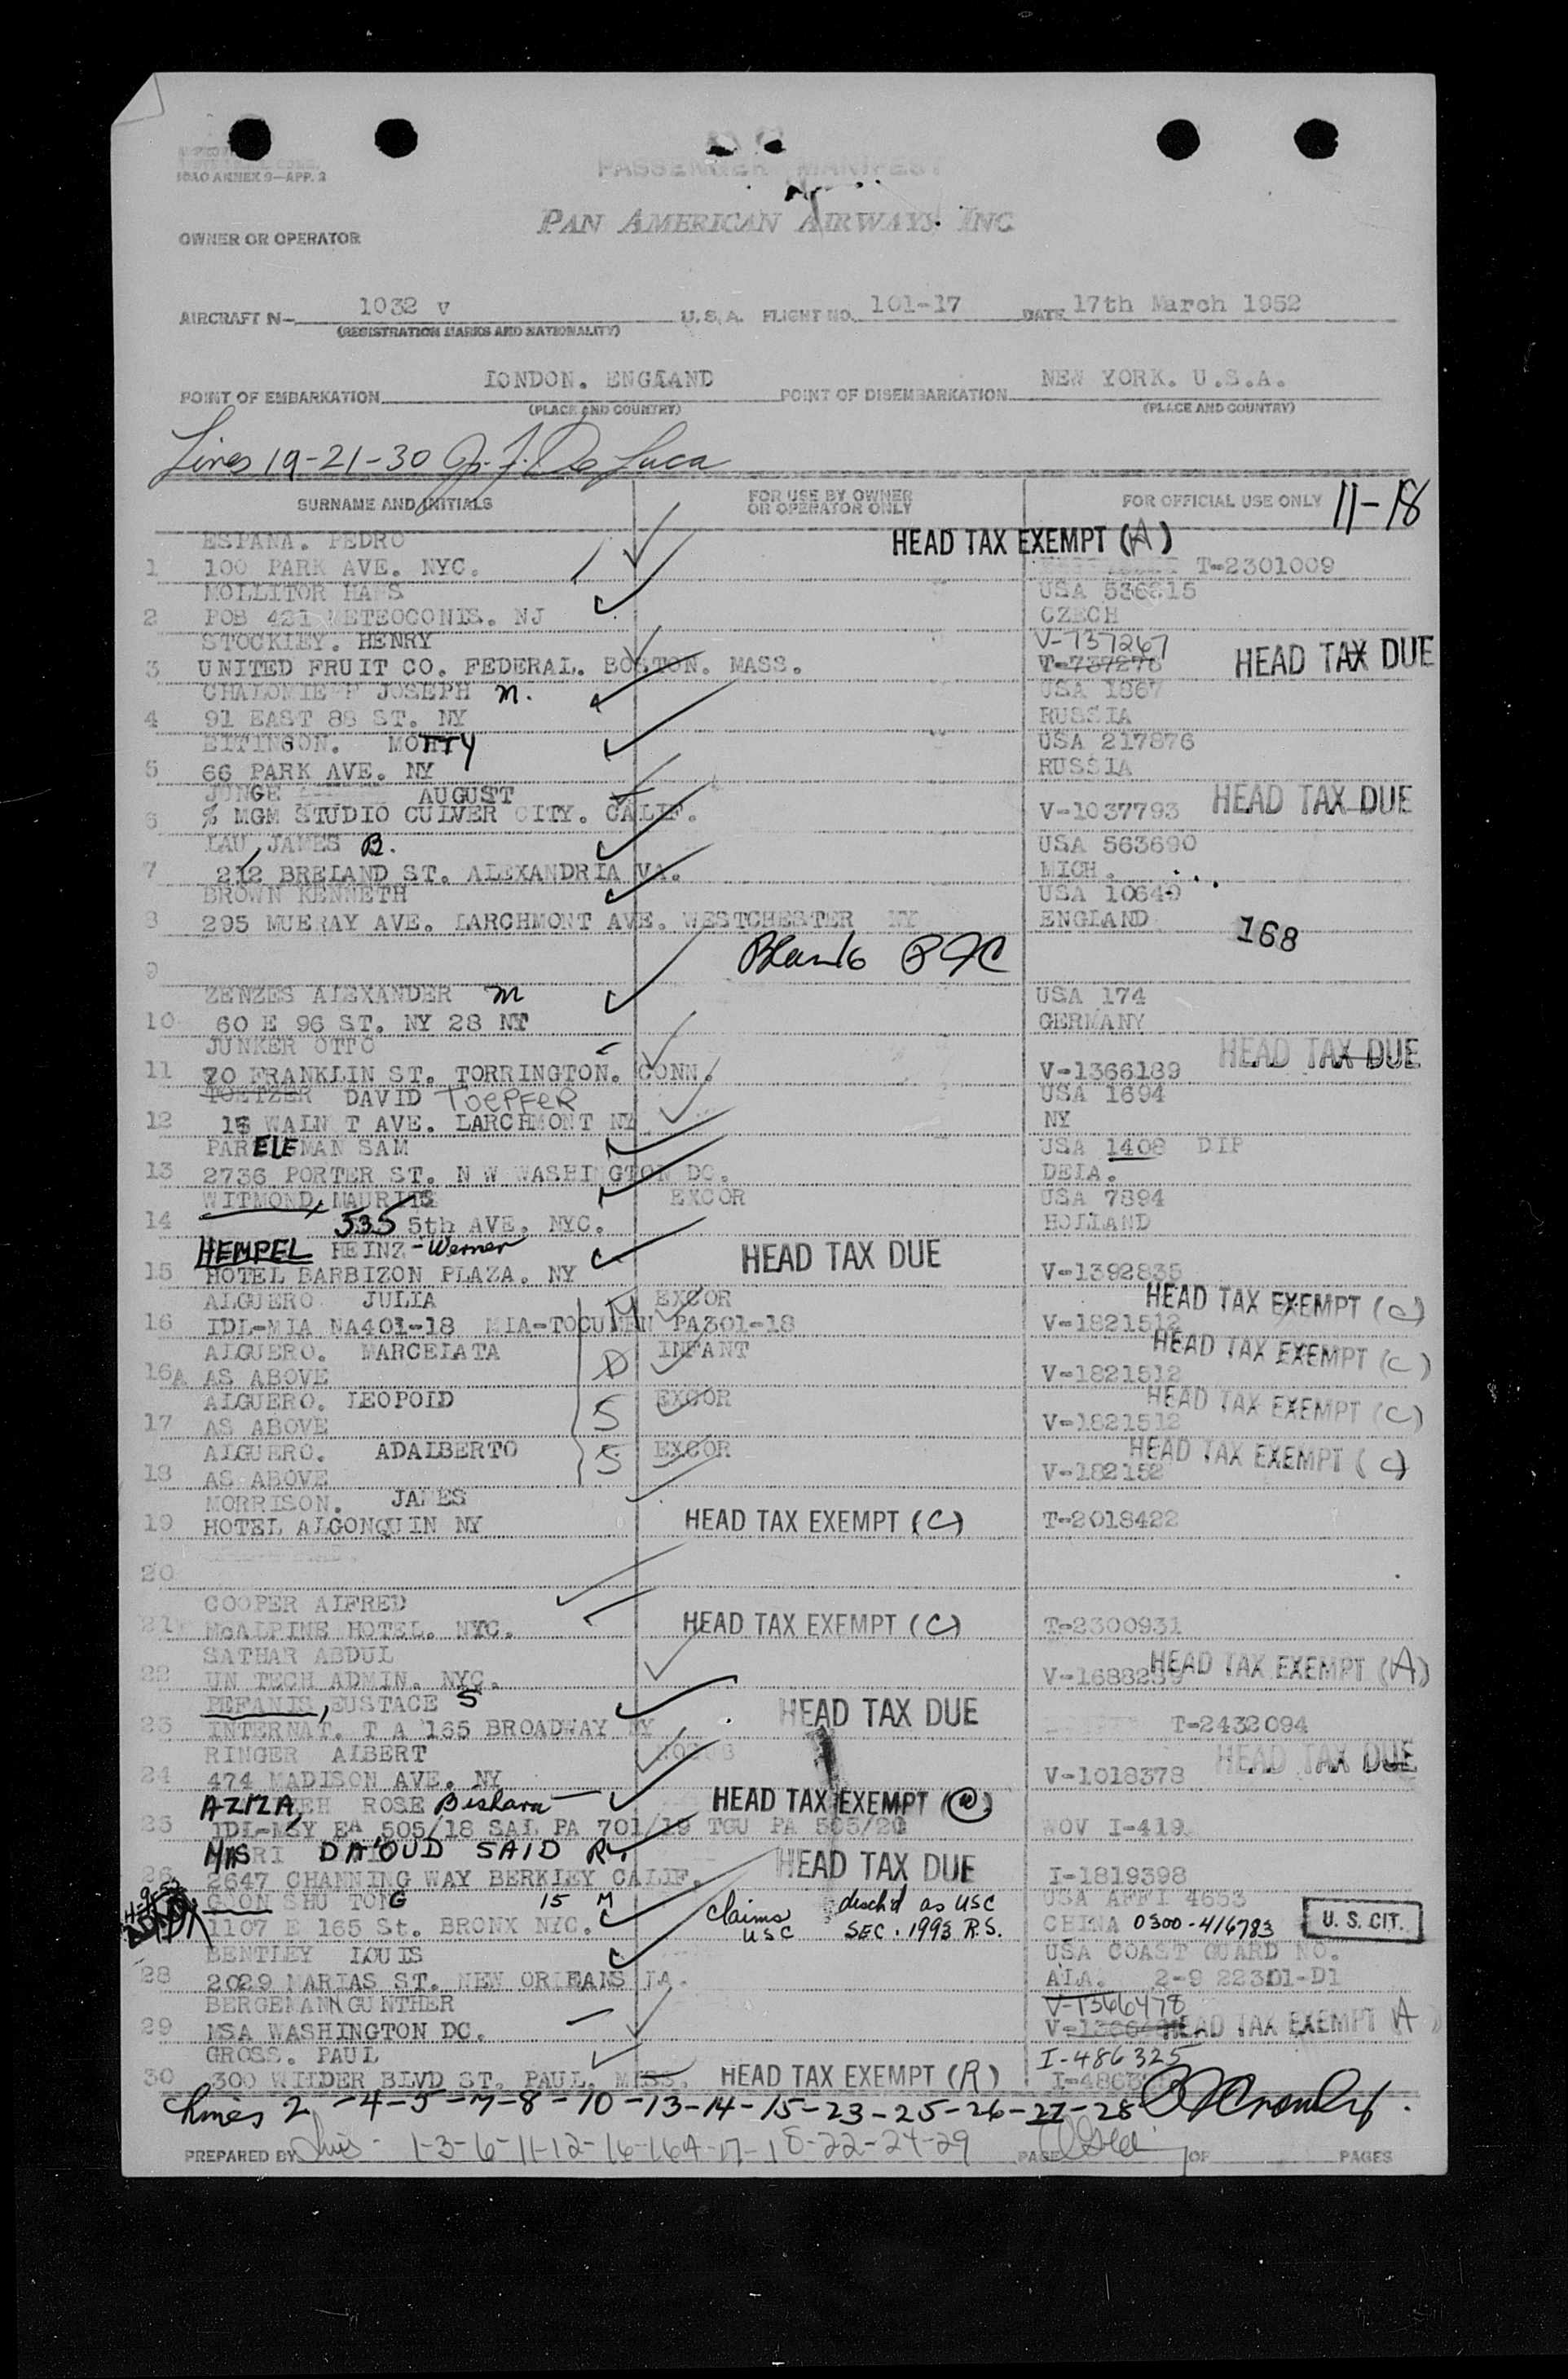 ICAO ANNEX 9—APP. 3
PASSENGER MANIFEST
PAN AMERICAN AIRWAYS INC
OWNER OR OPERATOR
AIRCRAFT N- 1032 V U.S.A. FLIGHT NO. 101-17 DATE 17th March 1952
(REGISTRATION MARKS AND NATIONALITY)
POINT OF EMBARKATION LONDON. ENGLAND POINT OF DISEMBARKATION NEW YORK. U.S.A.
(PLACE AND COUNTRY) (PLACE AND COUNTRY)
Lines 19-21-30 De Luca
SURNAME AND INITIALS FOR USE BY OWNER OR OPERATOR ONLY FOR OFFICIAL USE ONLY 11-18
ESPANA. PEDRO HEAD TAX EXEMPT (A)
1 100 PARK AVE. NYC. T-2301009
MOLLITOR HANS USA 536315
2 POB 421 NJ CZECH
STOCKLEY. HENRY V-737267
3 UNITED FRUIT CO. FEDERAL. BOSTON. MASS. V-737276 HEAD TAX DUE
JOSEPH M. USA 1867
4 91 EAST 88 ST. NY RUSSIA
EITINGON. MOTTY USA 217876
5 66 PARK AVE. NY RUSSIA
JUNGE AUGUST
6 % MGM STUDIO CULVER CITY. CALIF. V-1037793 HEAD TAX DUE
LAU, JAMES B. USA 563690
7 212 BRELAND ST. ALEXANDRIA VA. MICH.
BROWN KENNETH USA 10649
8 295 MURRAY AVE. LARCHMONT AVE. WESTCHESTER NY ENGLAND 168
9 Blank
ZENZES ALEXANDER M USA 174
10 60 E 96 ST. NY 28 NY GERMANY
JUNKER OTTO
11 70 FRANKLIN ST. TORRINGTON. CONN. V-1366189 HEAD TAX DUE
TOETZER DAVID TOEPFER USA 1694
12 15 WALN T AVE. LARCHMONT NY NY
PARELEMAN SAM USA 1408 DIP
13 2736 PORTER ST. N W WASHINGTON DC. DELA.
WITMOND, MAURITS EXCOR USA 7894
14 535 5th AVE. NYC. HOLLAND
HEMPEL HEINZ-Werner HEAD TAX DUE
15 HOTEL BARBIZON PLAZA. NY V-1392835
ALGUERO JULIA M EXCOR HEAD TAX EXEMPT (C)
16 IDL-MIA NA401-18 MIA-TOCUMEN PA301-18 V-1821512
ALGUERO. MARCELATA D INFANT HEAD TAX EXEMPT (C)
16A AS ABOVE V-1821512
ALGUERO. LEOPOLD S EXCOR HEAD TAX EXEMPT (C)
17 AS ABOVE V-1821512
ALGUERO. ADALBERTO S EXCOR HEAD TAX EXEMPT (C)
18 AS ABOVE V-182152
MORRISON. JAMES
19 HOTEL ALGONQUIN NY HEAD TAX EXEMPT (C) T-2018422
20
COOPER ALFRED
21 McALPINE HOTEL. NYC. HEAD TAX EXEMPT (C) T-2300931
SATHAR ABDUL
22 UN TECH ADMIN. NYC. HEAD TAX EXEMPT (A)
PEFANIS, EUSTACE S HEAD TAX DUE
23 INTERNAT. T A 165 BROADWAY NY T-2432094
RINGER ALBERT HEAD TAX DUE
24 474 MADISON AVE. NY V-1018378
AZIZA, ROSE Bishara HEAD TAX EXEMPT
25 IDL-MSY EA 505/18 SAL PA 701/19 TGU PA 505/20 WOV I-419
DA'OUD SAID HEAD TAX DUE
26 2647 CHANNING WAY BERKLEY CALIF. I-1819398
SHU TONG 15 M Claims USC desch'd as USC SEC. 1993 R.S. USA AFFI 4653
1107 E 165 St. BRONX NYC. CHINA 0300-416783 U. S. CIT.
BENTLEY LOUIS USA COAST GUARD NO.
28 2029 MARIAS ST. NEW ORLEANS LA. ALA. 2-9 22301-D1
BERGEMANN GUNTHER V-1366478
29 MSA WASHINGTON DC. HEAD TAX EXEMPT A
GROSS. PAUL I-486325
30 300 WILDER BLVD ST. PAUL. MISS. HEAD TAX EXEMPT (R)
Lines 2-4-5-7-8-10-13-14-15-23-25-26-27-28
PREPARED BY Lines - 1-3-6-11-12-16-16A-17-18-22-24-29 PAGE OF PAGES